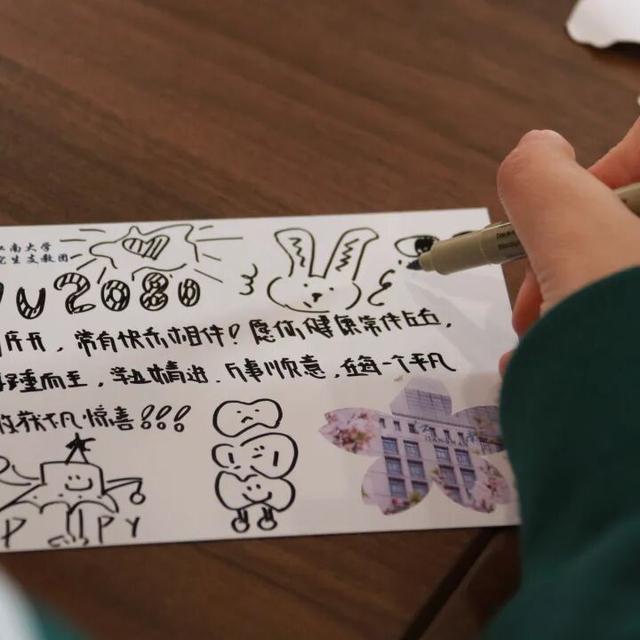 江南大学
究生支教团
2080
开开，常有快乐相伴！愿你健康常伴左右，
踵而至，学业精进，万事顺意，在每一个平凡
收获不凡惊喜！！！
P PY